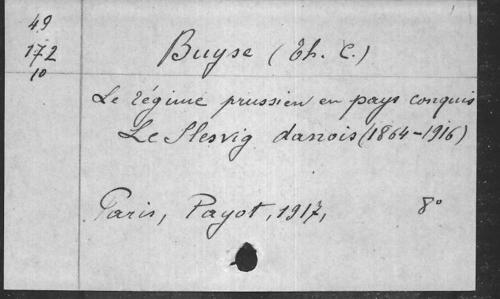 49
172
10
Buyse (Th. C.)
Le régime prussien en pays conquis
Le Slesvig danois (1864-1916)
Paris, Payot, 1917, 8°